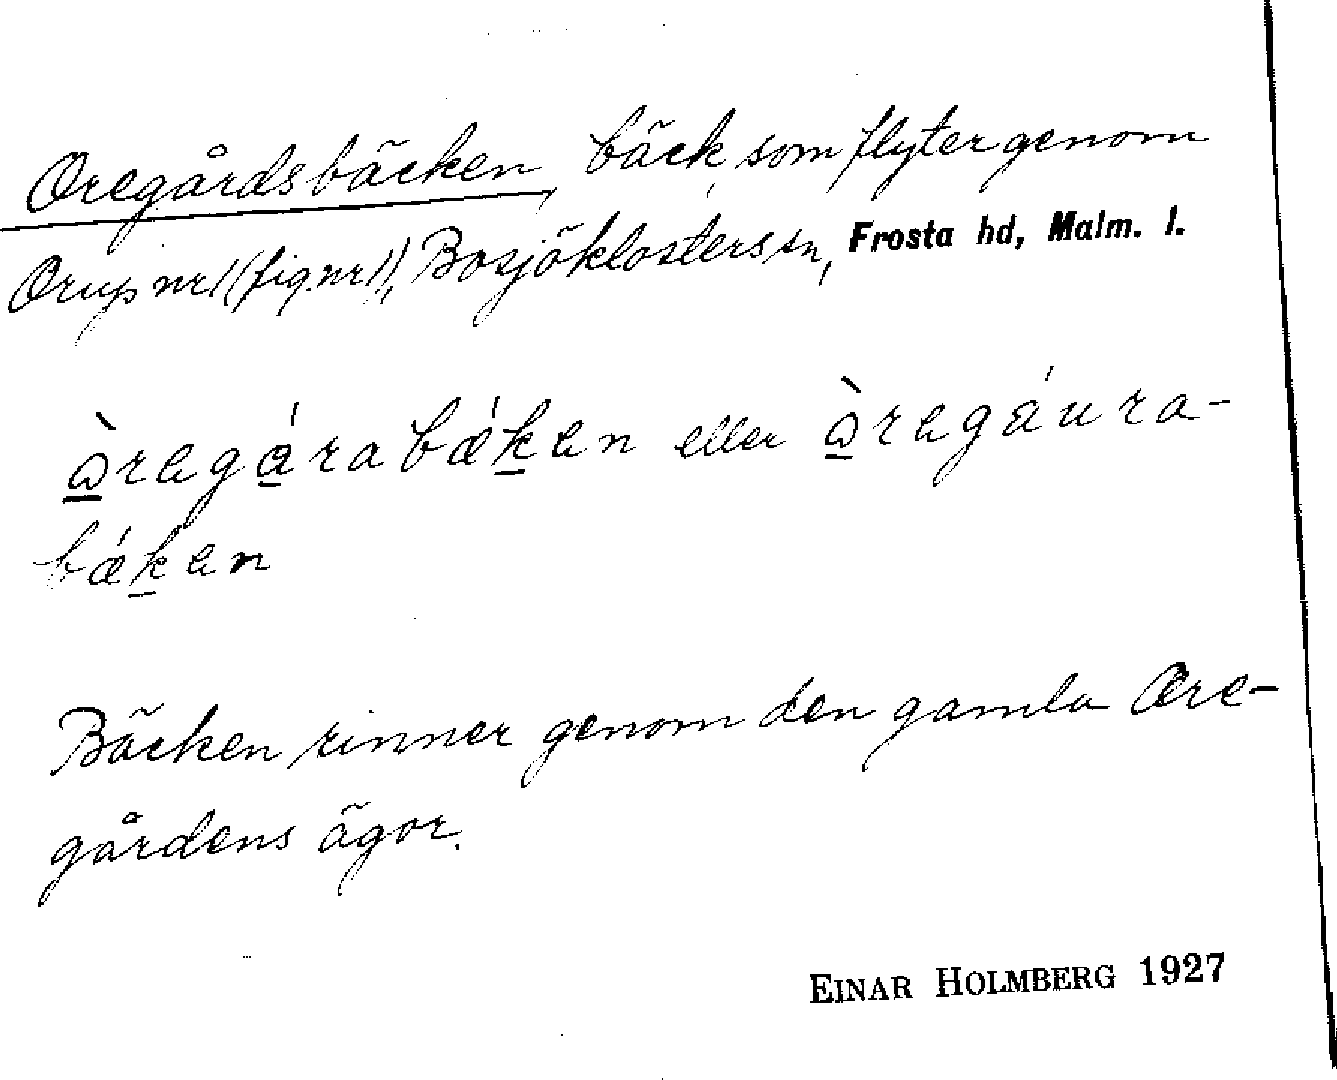 Oregårdsbäcken, bäck, som flyter genom
Orup nr 1 (fig. nr 1), Bosjöklosters sn, Frosta hd, Malm. l.
ɷ̀regárabǽken eller ɷ̀regáura-
bǽken
Bäcken rinner genom den gamla Ore-
gårdens ägor.
EINAR HOLMBERG 1927